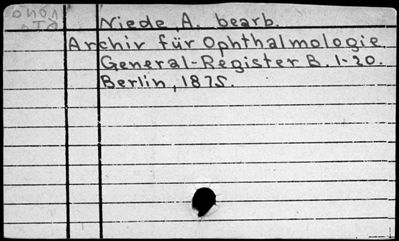 Niede, A. bearb.
Archiv für Ophthalmologie
General-Register B. 1-20.
Berlin, 1875.